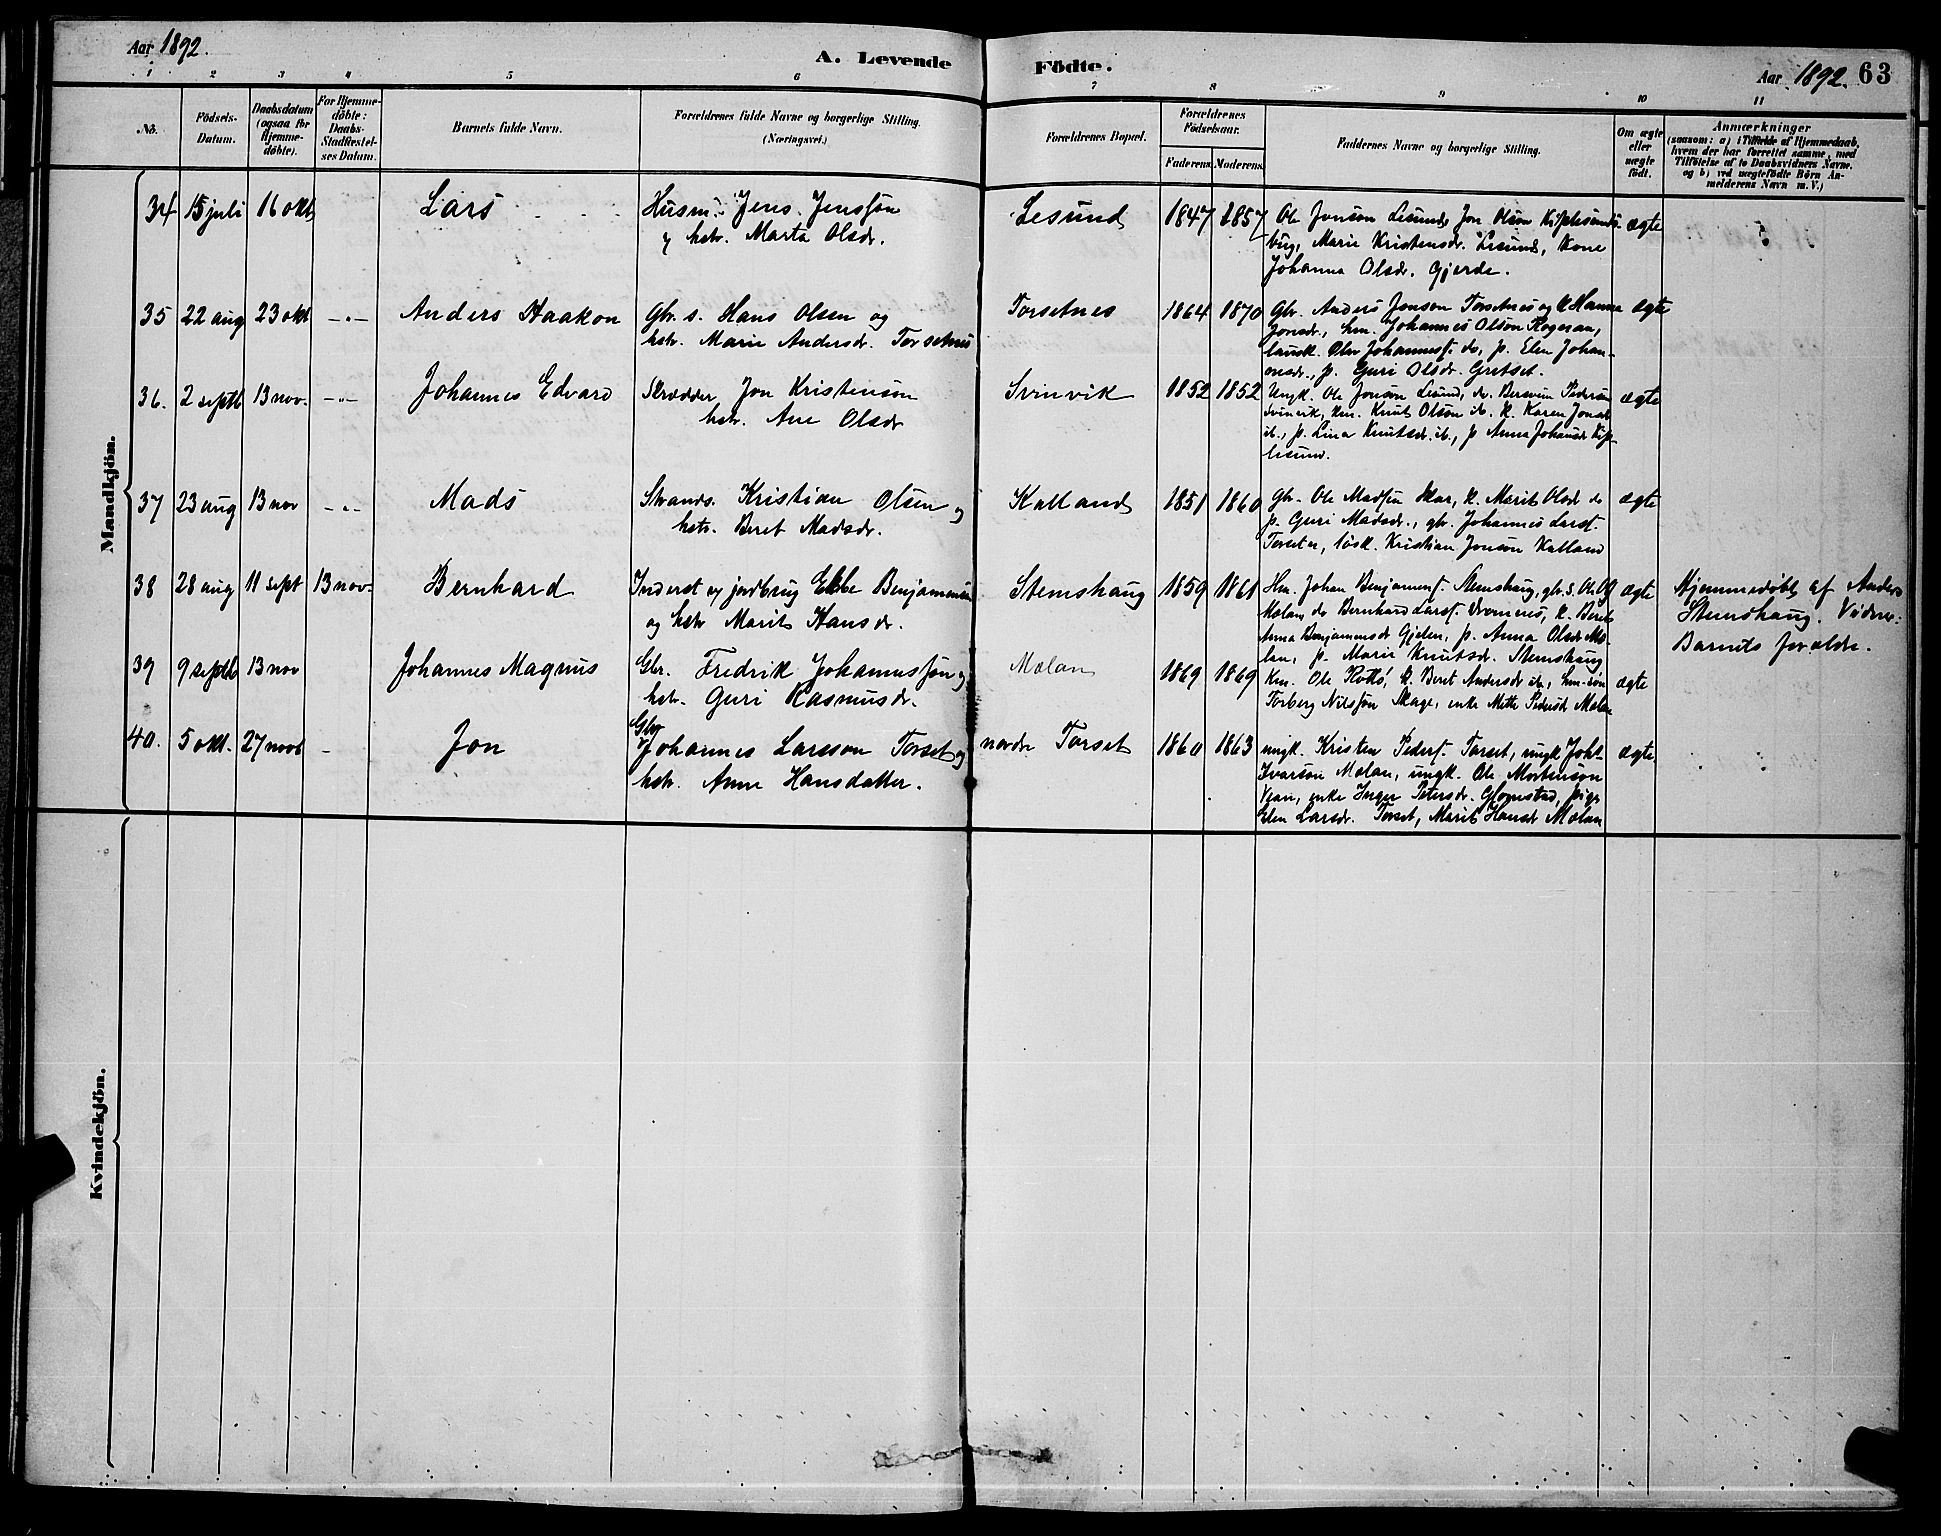 Aar 1892.
A. Levende Födte.
Aar 1892. 63
1 2 3 4 5 6 7 8 9 10 11
No.
Födsels-
Datum.
Daabsdatum
(ogsaa for
Hjemme-
döbte).
For Hjemme-
döbte:
Daabs-
Stadfæstel-
ses Datum.
Barnets fulde Navn.
Forældrenes fulde Navne og borgerlige Stilling.
(Næringsvei.)
Forældrenes Bopæl.
Forældrenes
Födselsaar.
Faderens. Moderens.
Faddernes Navne og borgerlige Stilling.
Om ægte
eller
uægte
födt.
Anmærkninger
(saasom: a) i Tilfælde af Hjemmedaab,
hvem der har forrettet samme, med
Tilföielse af to Daabsvidners Navne,
og b) ved uægtefödte Börn An-
melderens Navn m. V.)
Mandkjön.
34 15 juli 16 okt Lars
Husm. Jens Jensson
og hstr. Marta Olsdr.
Lesund 1847 1857
Ole Jonson Lesund, Jon Olson
Marie Kristensdr. Lesund, kone
Johanna Olsdr. Gjerde.
ægte
35 22 aug 23 okt -"- Anders Haakon
Gbr. s. Hans Olsen og
hstr. Marie Andersdr. Torsetnes
Torsetnes 1864 1870
Gbr. Anders Jonson Torsetnes og k Hanna
Jonsdr., hm. Johannes Olson Rogeran,
Johannesf. do, p. Elen Johan-
p. Guri Olsdr. Gretset.
ægte
36. 2 septb 13 nov. -"- Johannes Edvard
Skrædder Jon Kristenson
hstr. Ane Olsdr
Svinvik 1852 1852
Ungk. Ole Jonson Lesund, do. Bersvein Pederson
Svinvik, hm. Knut Olson ib. k. Karen Jonsdr
ib., p. Lina Knutsdr. ib., p Anna Johansdr Kip-
lesund.
ægte
37 23 aug 13 nov -"- Mads
Strands. Kristian Olsen og
hstr. Beret Madsdr.
Kalland 1851 1860
Gbr. Ole Madsen Skar, k. Marit Olsdr do
p. Guri Madsdr., gbr. Johannes Larsf.
Torseter, løsk. Kristian Jonson Kalland
ægte
38 28 aug 11 sept 13 nov. Bernhard
Inderst og jordbrug Ebbe Benjaminsen
og hstr Marit Hansdr.
Stemshaug 1859 1861
Hm. Johan Benjaminsf. Stemshaug, gbr. s. Ole O
Molan do Bernhard Larsf. Dromnes, k. Beret
Anna Benjaminsdr Gjelen, p. Anna Olsdr Mo-
lan, p. Marie Knutsdr. Stemshaug
ægte
Hjemmedøbt af Anders
Stemshaug. Vidner:
Barnets forældre.
39 9 septb 13 nov Johannes Magnus
Gbr. Fredrik Johannesson og
hstr. Guri Rasmusdr.
Molan 1869 1869
Ole k. Beret Andersdr ib., hm-søn
Torberg Nilsson Skage, enke Mette Pedersdr Molan
ægte
40. 5 okt. 27 novb - Jon
Gbr
Johannes Larsson Torset og
hstr. Anne Hansdatter.
nordre Torset 1860 1863
ungk. Kristen Pedersf. Torset, ungk Joh.
Ivarson Molan, ungk. Ole Mortenson
Vean, enke Inger Petersdr. Glomstad, pige
Elen Larsdr. Torset, Marit Hansdr Molan
ægte
Kvindekjön.